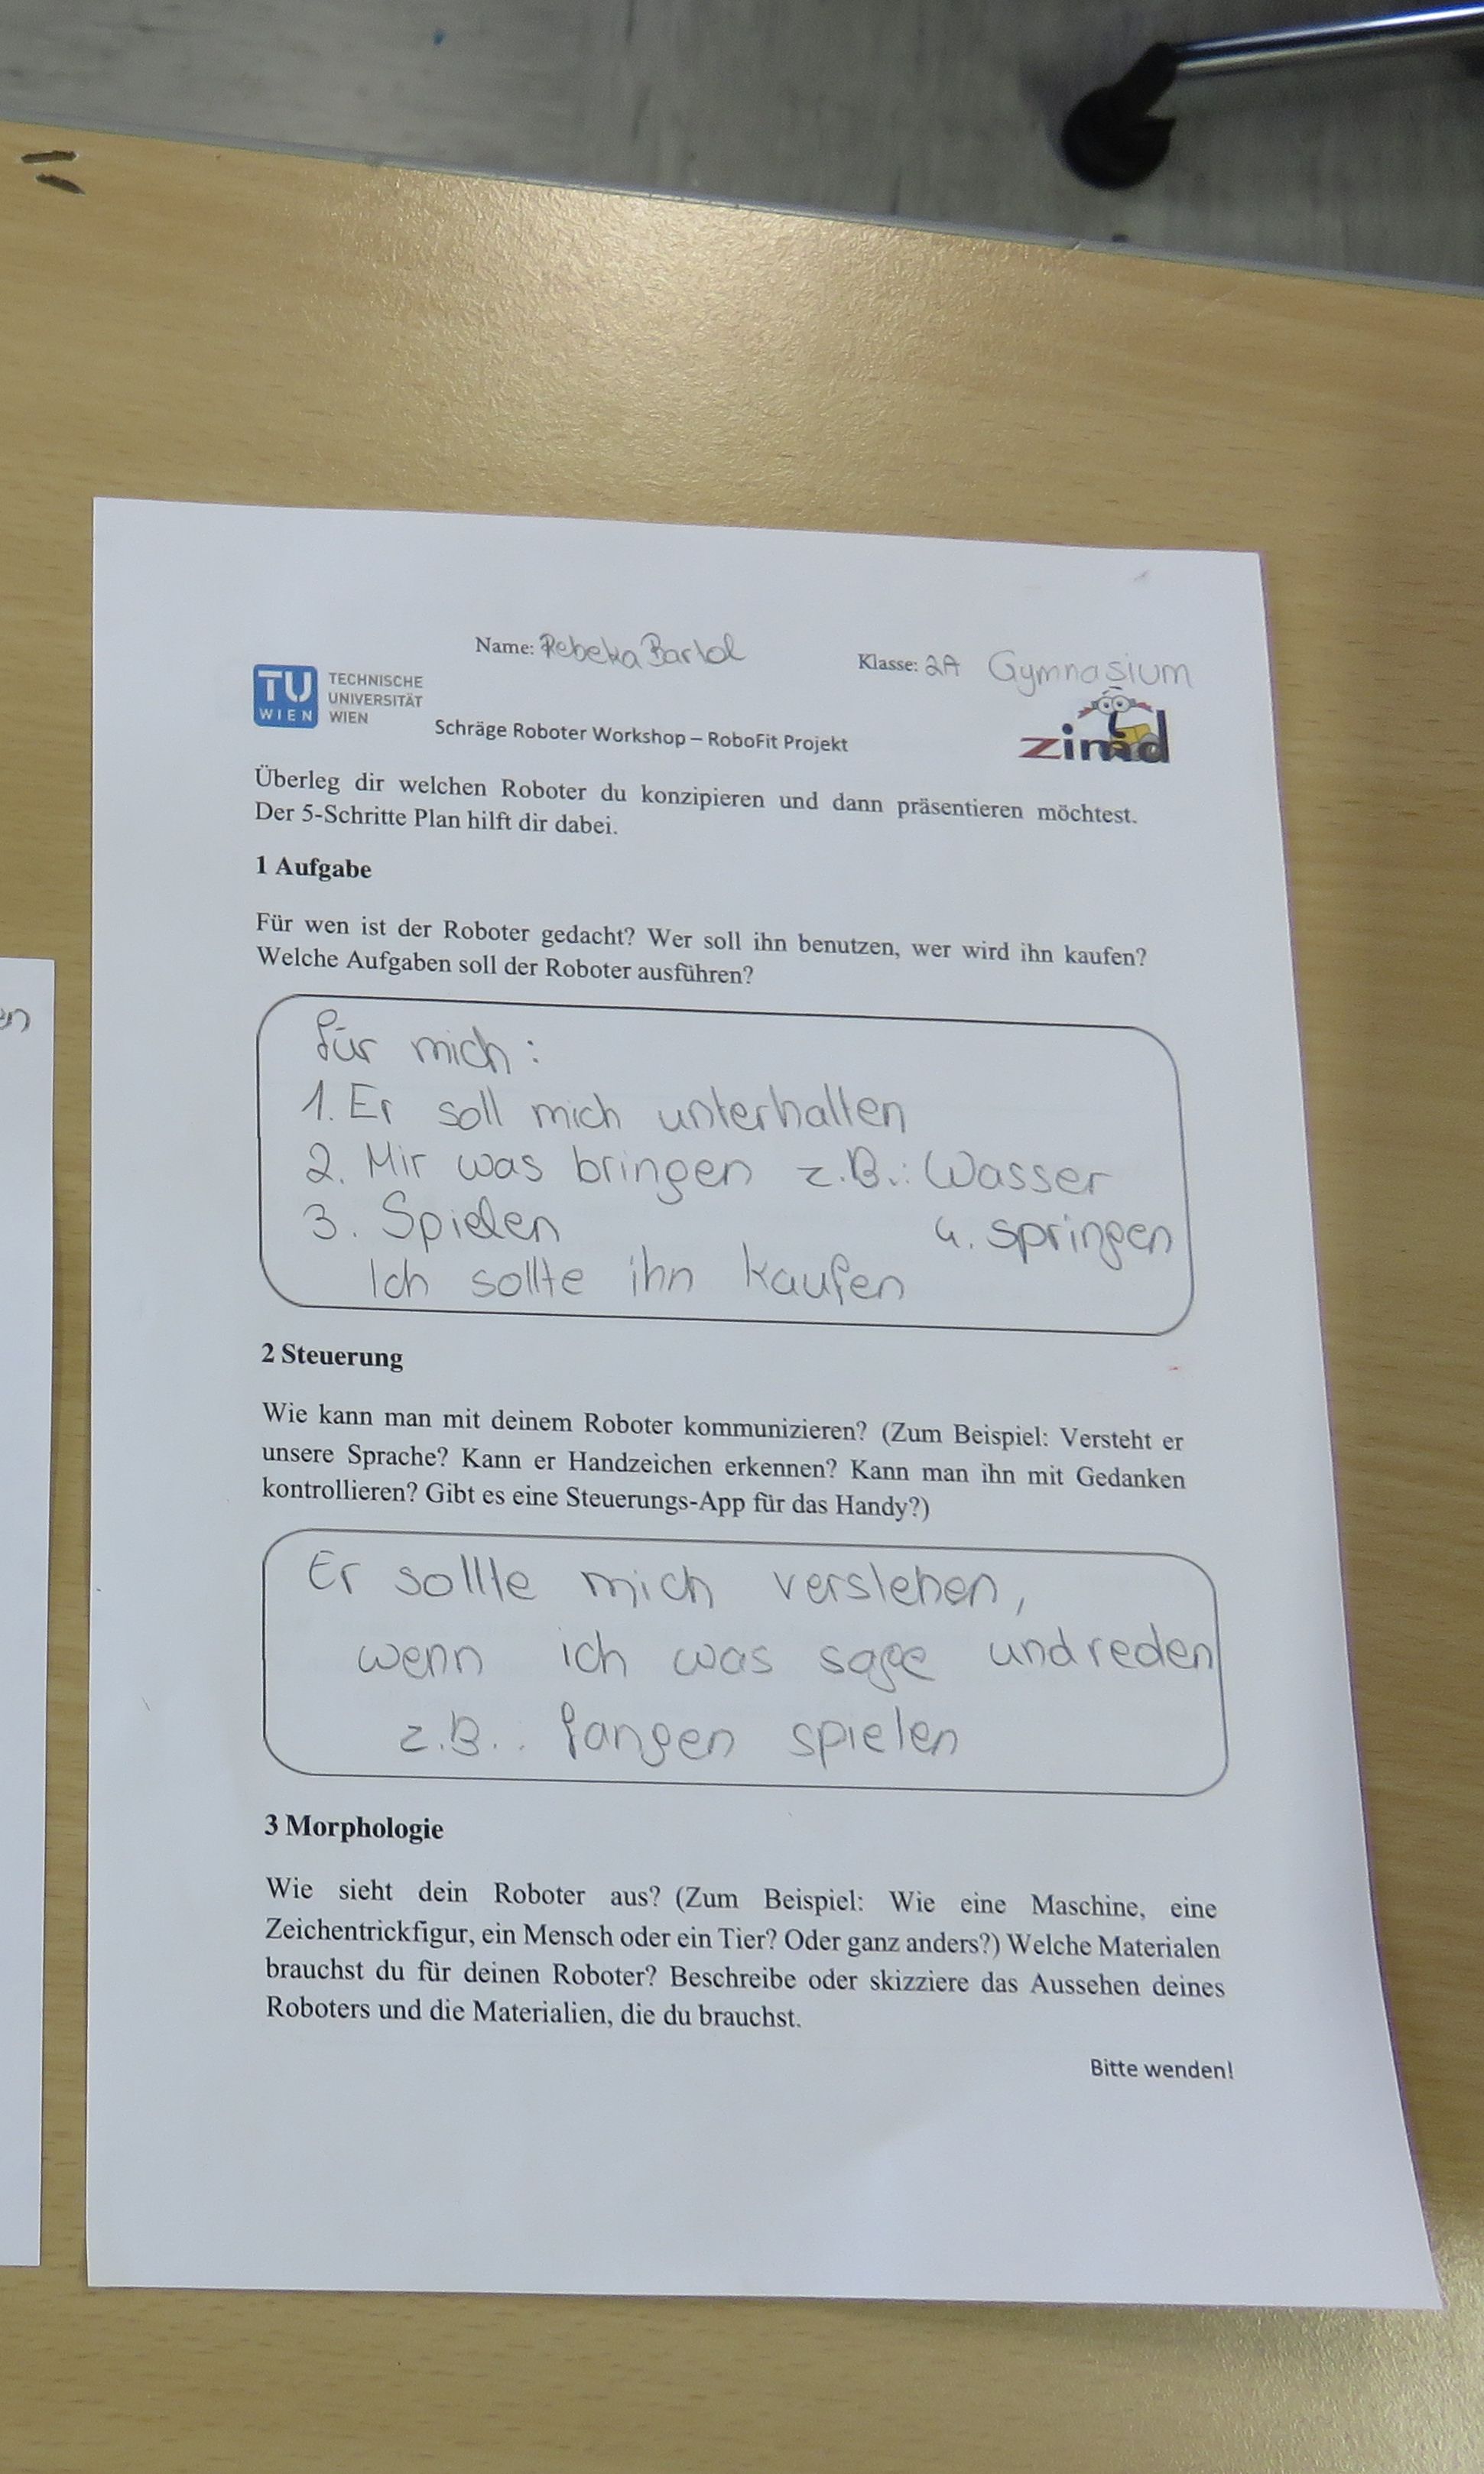 Name: Rebeka Bartol Klasse: 2A Gymnasium
TU WIEN TECHNISCHE UNIVERSITÄT WIEN
Schräge Roboter Workshop – RoboFit Projekt
zimd
Überleg dir welchen Roboter du konzipieren und dann präsentieren möchtest.
Der 5-Schritte Plan hilft dir dabei.
1 Aufgabe
Für wen ist der Roboter gedacht? Wer soll ihn benutzen, wer wird ihn kaufen?
Welche Aufgaben soll der Roboter ausführen?
für mich:
1. Er soll mich unterhalten
2. Mir was bringen z.B.: Wasser
3. Spielen 4. springen
Ich sollte ihn kaufen
2 Steuerung
Wie kann man mit deinem Roboter kommunizieren? (Zum Beispiel: Versteht er
unsere Sprache? Kann er Handzeichen erkennen? Kann man ihn mit Gedanken
kontrollieren? Gibt es eine Steuerungs-App für das Handy?)
Er sollte mich verstehen,
wenn ich was sage und reden
z.B.: fangen spielen
3 Morphologie
Wie sieht dein Roboter aus? (Zum Beispiel: Wie eine Maschine, eine
Zeichentrickfigur, ein Mensch oder ein Tier? Oder ganz anders?) Welche Materialen
brauchst du für deinen Roboter? Beschreibe oder skizziere das Aussehen deines
Roboters und die Materialien, die du brauchst.
Bitte wenden!